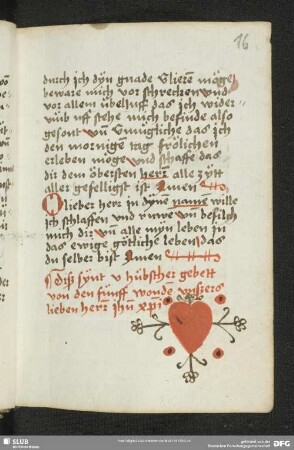 16
durch ich dyn gnade Vlieren möge
beware mich vor schrecken vnd
vor allem übel uff das ich wider
vmb uff stehe mich befinde also
gesont vn̄ das ich
den mornige tag frölichen
erleben möge vnd schaffe das
dir dem öbersten herr alle zytt
aller gefelligst ist Amen
O lieber herr in dyne namen wille
ich schlaffen vnd ruwe vn̄ befilch
mich dir vn̄ alle myn leben in
das ewige götliche leben das
du selber bist Amen
Diß synt v hübscher gebett
von den funff wonde vnsers
lieben herr ihu xpi
SLUB
DFG